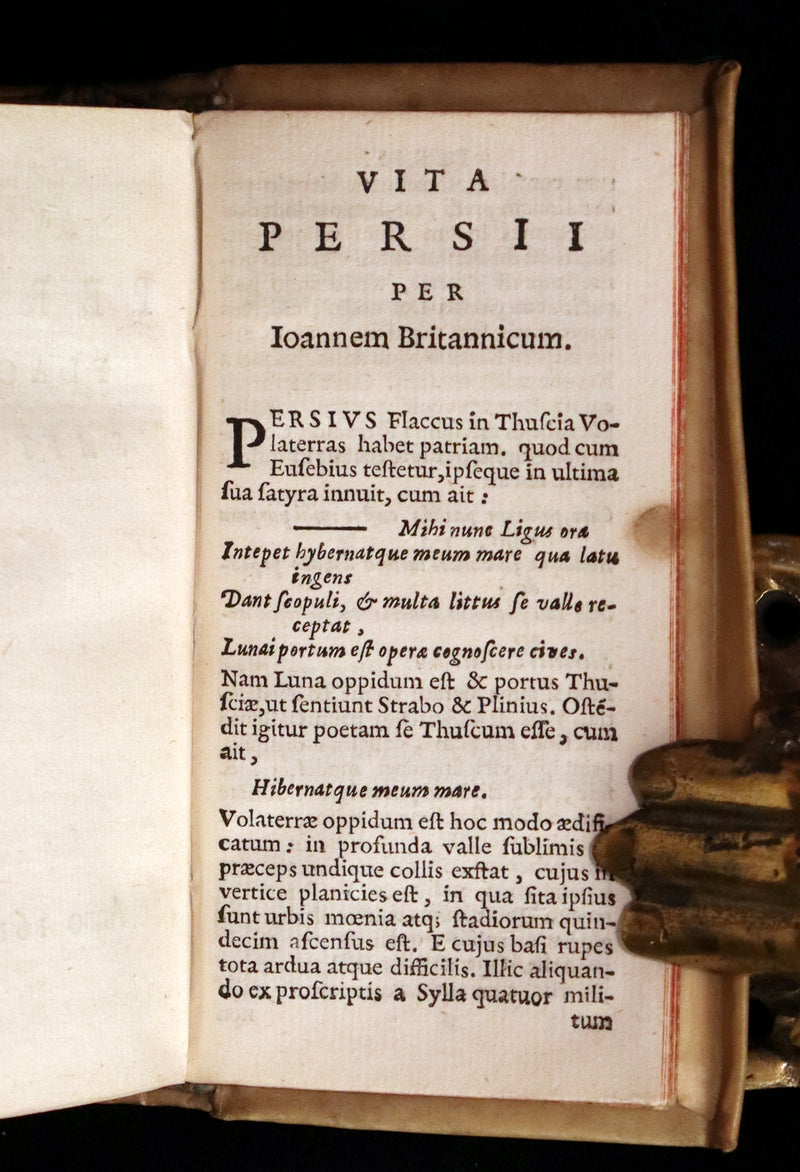 VITA
PERSII
PER
Ioannem Britannicum.
PERSIVS Flaccus in Thuſcia Vo-
laterras habet patriam. quod cum
Euſebius teſtetur,ipſeque in ultima
ſua ſatyra innuit, cum ait :
——— Mihi nunc Ligus ora
Intepet hybernatque meum mare qua latus
ingens
Dant ſcopuli, & multa littus ſe valle re-
ceptat ,
Lunai portum eſt opera cognoſcere cives.
Nam Luna oppidum eſt & portus Thu-
ſciæ,ut ſentiunt Strabo & Plinius. Oſté-
dit igitur poetam ſe Thuſcum eſſe , cum
ait ,
Hibernatque meum mare.
Volaterræ oppidum eſt hoc modo ædifi-
catum : in profunda valle ſublimis
præceps undique collis exſtat , cujus in
vertice planicies eſt , in qua ſita ipſius
ſunt urbis mœnia atq; ſtadiorum quin-
decim aſcenſus eſt. E cujus baſi rupes
tota ardua atque difficilis. Illic aliquan-
do ex proſcriptis a Sylla quatuor mili-
tum